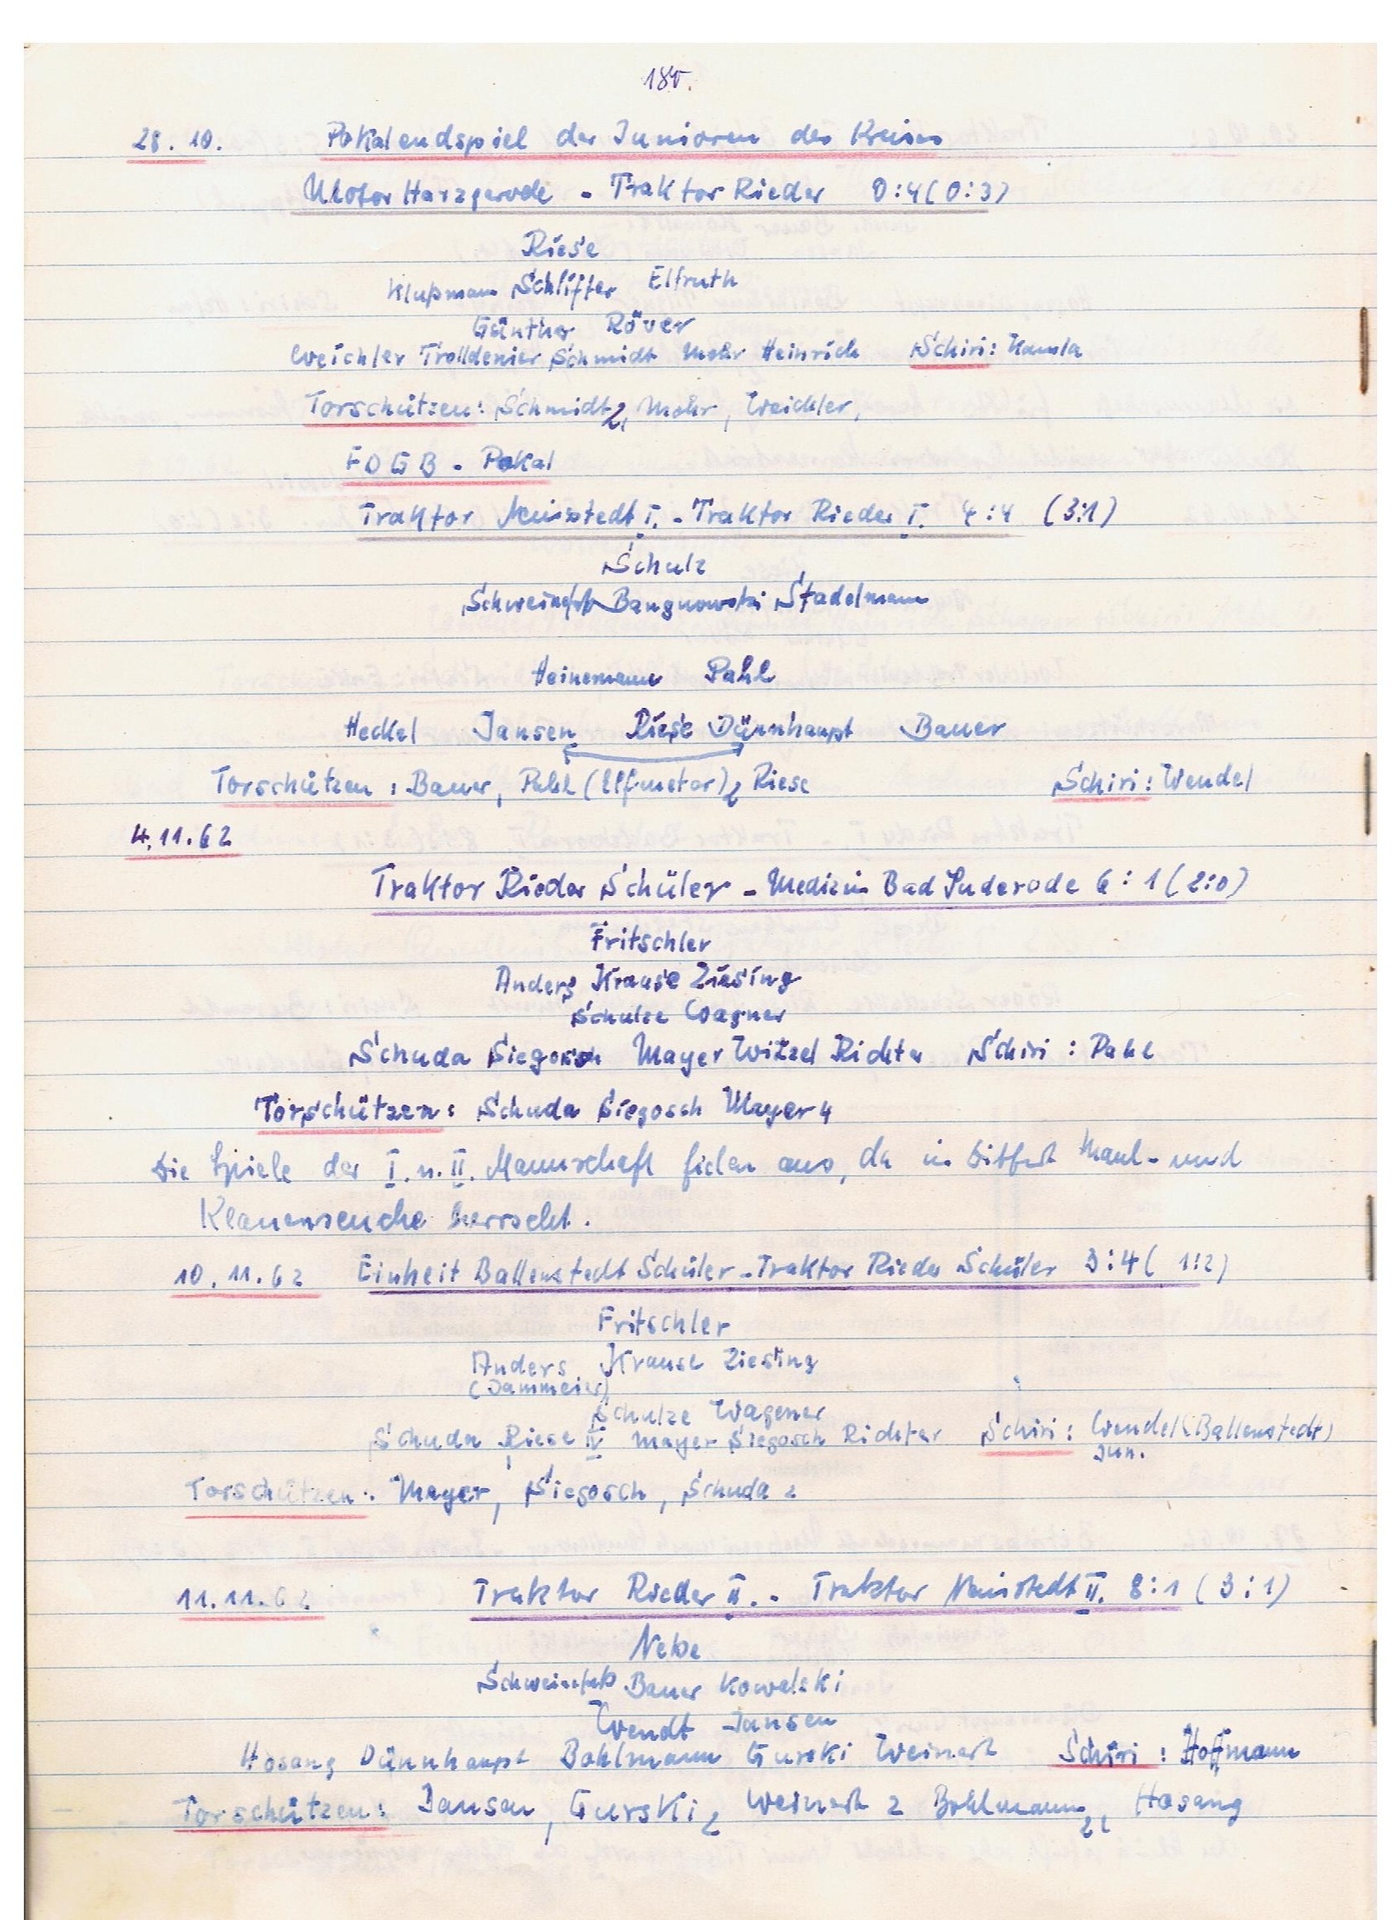 185.
28. 10. Pokalendspiel der Junioren des Kreises
Motor Harzgerode - Traktor Rieder 0:4 (0:3)
Riese
Klußmann Schlifter Elfruth
Günther Röver
Weichler Trolldenier Schmidt Mohr Heinrich Schiri: Kamla
Torschützen: Schmidt 2, Mohr, Weichler,
FDGB - Pokal
Traktor Neinstedt I. - Traktor Rieder I. 4:4 (3:1)
Schulz
Bangnowski Stadelmann
Heinemann Pahl
Heckel Jansen Riese Dünnhaupt Bauer
Torschützen: Bauer, Pahl (Elfmeter) 2 Riese Schiri: Wendel
4.11.62
Traktor Rieder Schüler - Medizin Bad Suderode 6:1 (2:0)
Fritschler
Anders Krause Ziesing
Schulze Wagner
Schuda Siegosch Mayer Witzel Richter Schiri: Pahl
Torschützen: Schuda Siegosch Mayer 4
Die Spiele der I. u. II. Mannschaft fielen aus, da in Ditfurt Maul- und
Klauenseuche herrscht.
10.11.62 Einheit Ballenstedt Schüler - Traktor Rieder Schüler 3:4 (1:2)
Fritschler
Anders Krause Ziesing
(Dammeier)
Schulze Wagener
Schuda Riese IV Mayer Siegosch Richter Schiri: Wendel (Ballenstedt)
jun.
Torschützen: Mayer, Siegosch, Schuda 2
11.11.62 Traktor Rieder II. - Traktor Neinstedt II. 8:1 (3:1)
Nebe
Bauer Kowalski
Wendt Jansen
Hosang Dünnhaupt Bohlmann Gurski Weinert Schiri: Hoffmann
Torschützen: Jansen, Gurski 2 Weinert 2 Bohlmann 2, Hosang